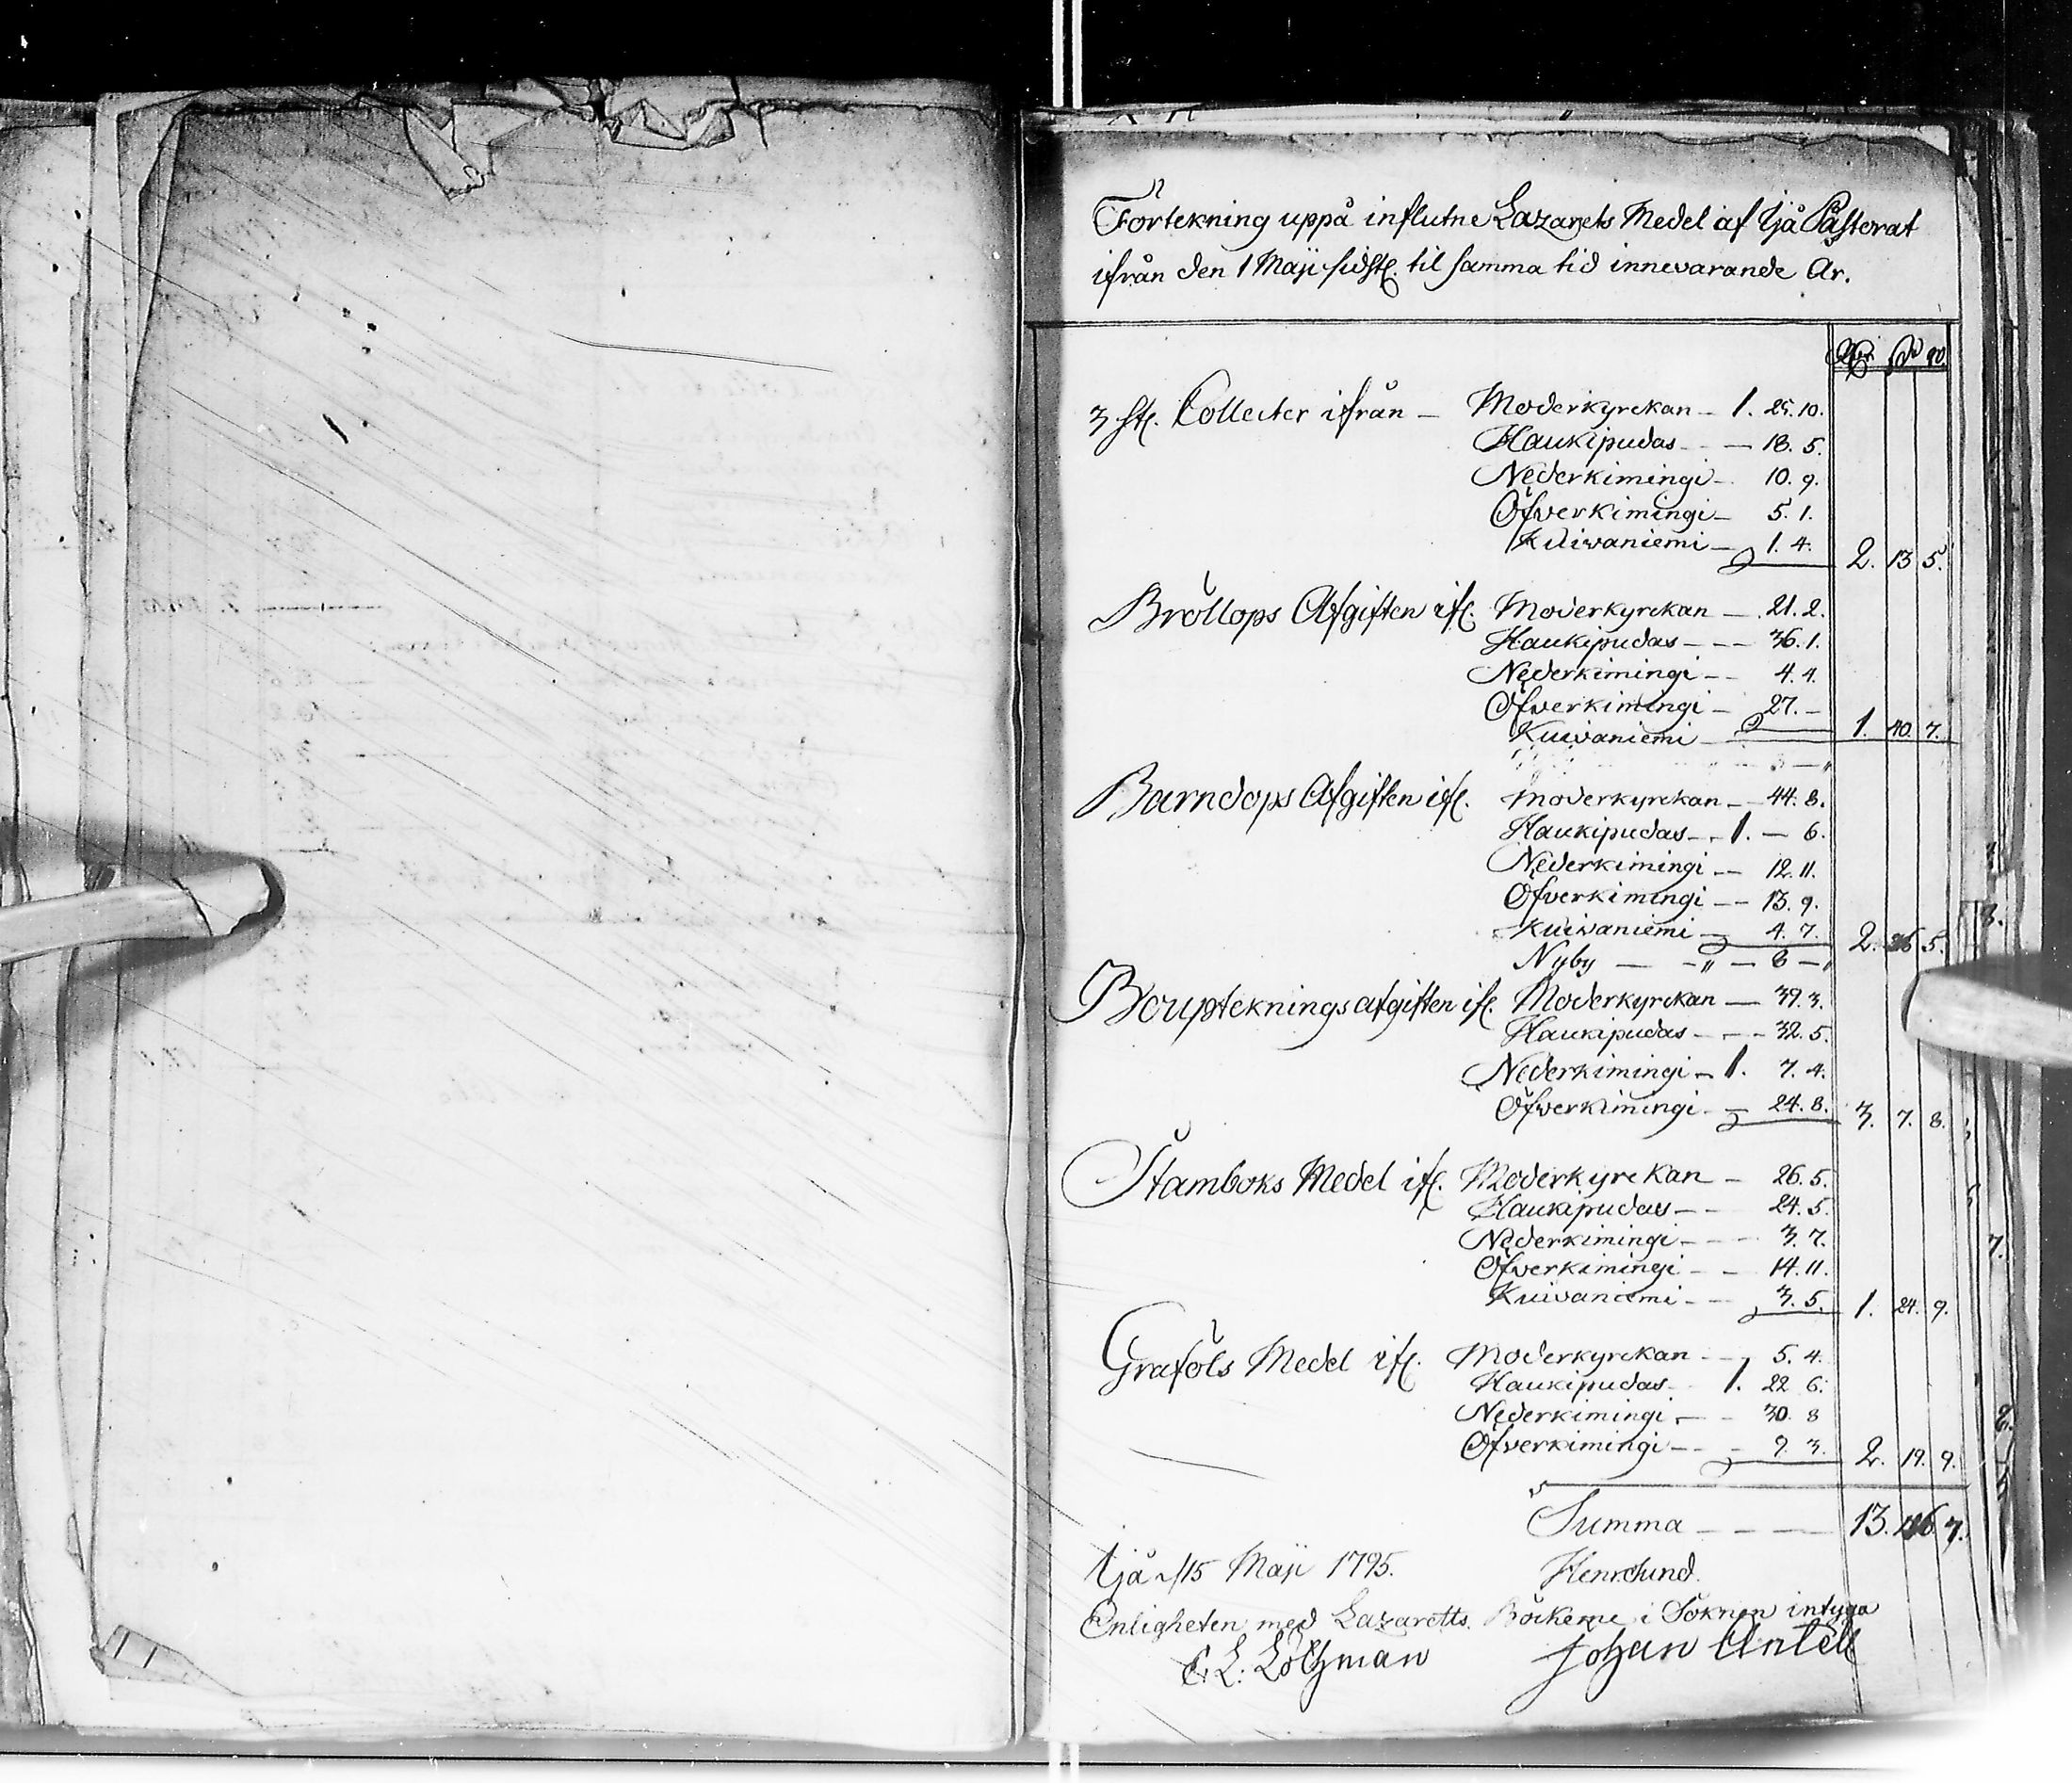 Förtekning uppå influtne Lazarets Medel af Ijå Pastorat
ifrån den 1 Maji sidstl. til samma tid innevarande År.
3 st. Collecter ifrån – Moderkyrckan – 1. 25. 10.
Haukipudas – – 18. 5.
Nederkimingi – 10. 9.
Öfverkimingi – 5. 1.
Kuiwaniemi – 1. 4. 2. 13 5.
Bröllops Afgiften ifr. Moderkyrckan – 21. 2.
Haukipudas – – – 36. 1.
Nederkimingi – – 4. 4.
Öfwerkimingi – 27. –
Kuiwaniemi – 1. 40. 7.
Barndops Afgiften ifr. Moderkyrckan – – 44. 8.
Haukipudas – . 1. – 6.
Nederkimingi – – 12. 11.
Öfverkimingi – – 13. 9.
Kuiwaniemi – 4. 7. 2. 5.
Nyby — – " –
Bouptekningsafgiften ifr. Moderkyrckan — 39. 3.
Haukipudas – – – 32. 5.
Nederkimingi – 1. 7. 4.
Öfwerkimingi – 24. 8. 3. 7. 8.
Stamboks Medel ifr. Moderkyrckan – 26. 5.
Haukipudas – – 24. 5.
Nederkimingi – – – 3. 7.
Öfwerkimingi – – 14. 11.
Kuiwaniemi – – 3. 5. 1. 24. 9.
Graföls Medel ifr. Moderkyrckan – – 5. 4.
Haukipudas – 1. 22 6.
Nederkimingi – – 30. 8
Öfverkimingi – – – 9. 3. 2. 19. 9.
Summa – – — 13. 7.
Ijå d. 15 Maji 1795.
Enligheten med Lazaretts Böckerne i Söknen intyga
Johan Antell